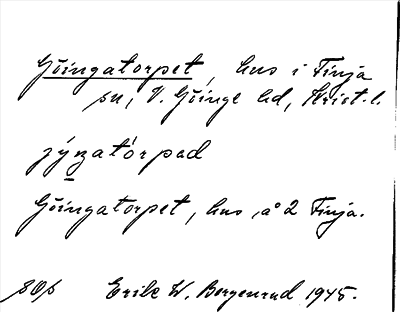 Göingatorpet, hus i Finja
sn, V. Göinge hd, Krist. l.
jýŋatórpad
Göingatorpet, hus, å 2 Finja.
Erik W. Bergenrud 1945.